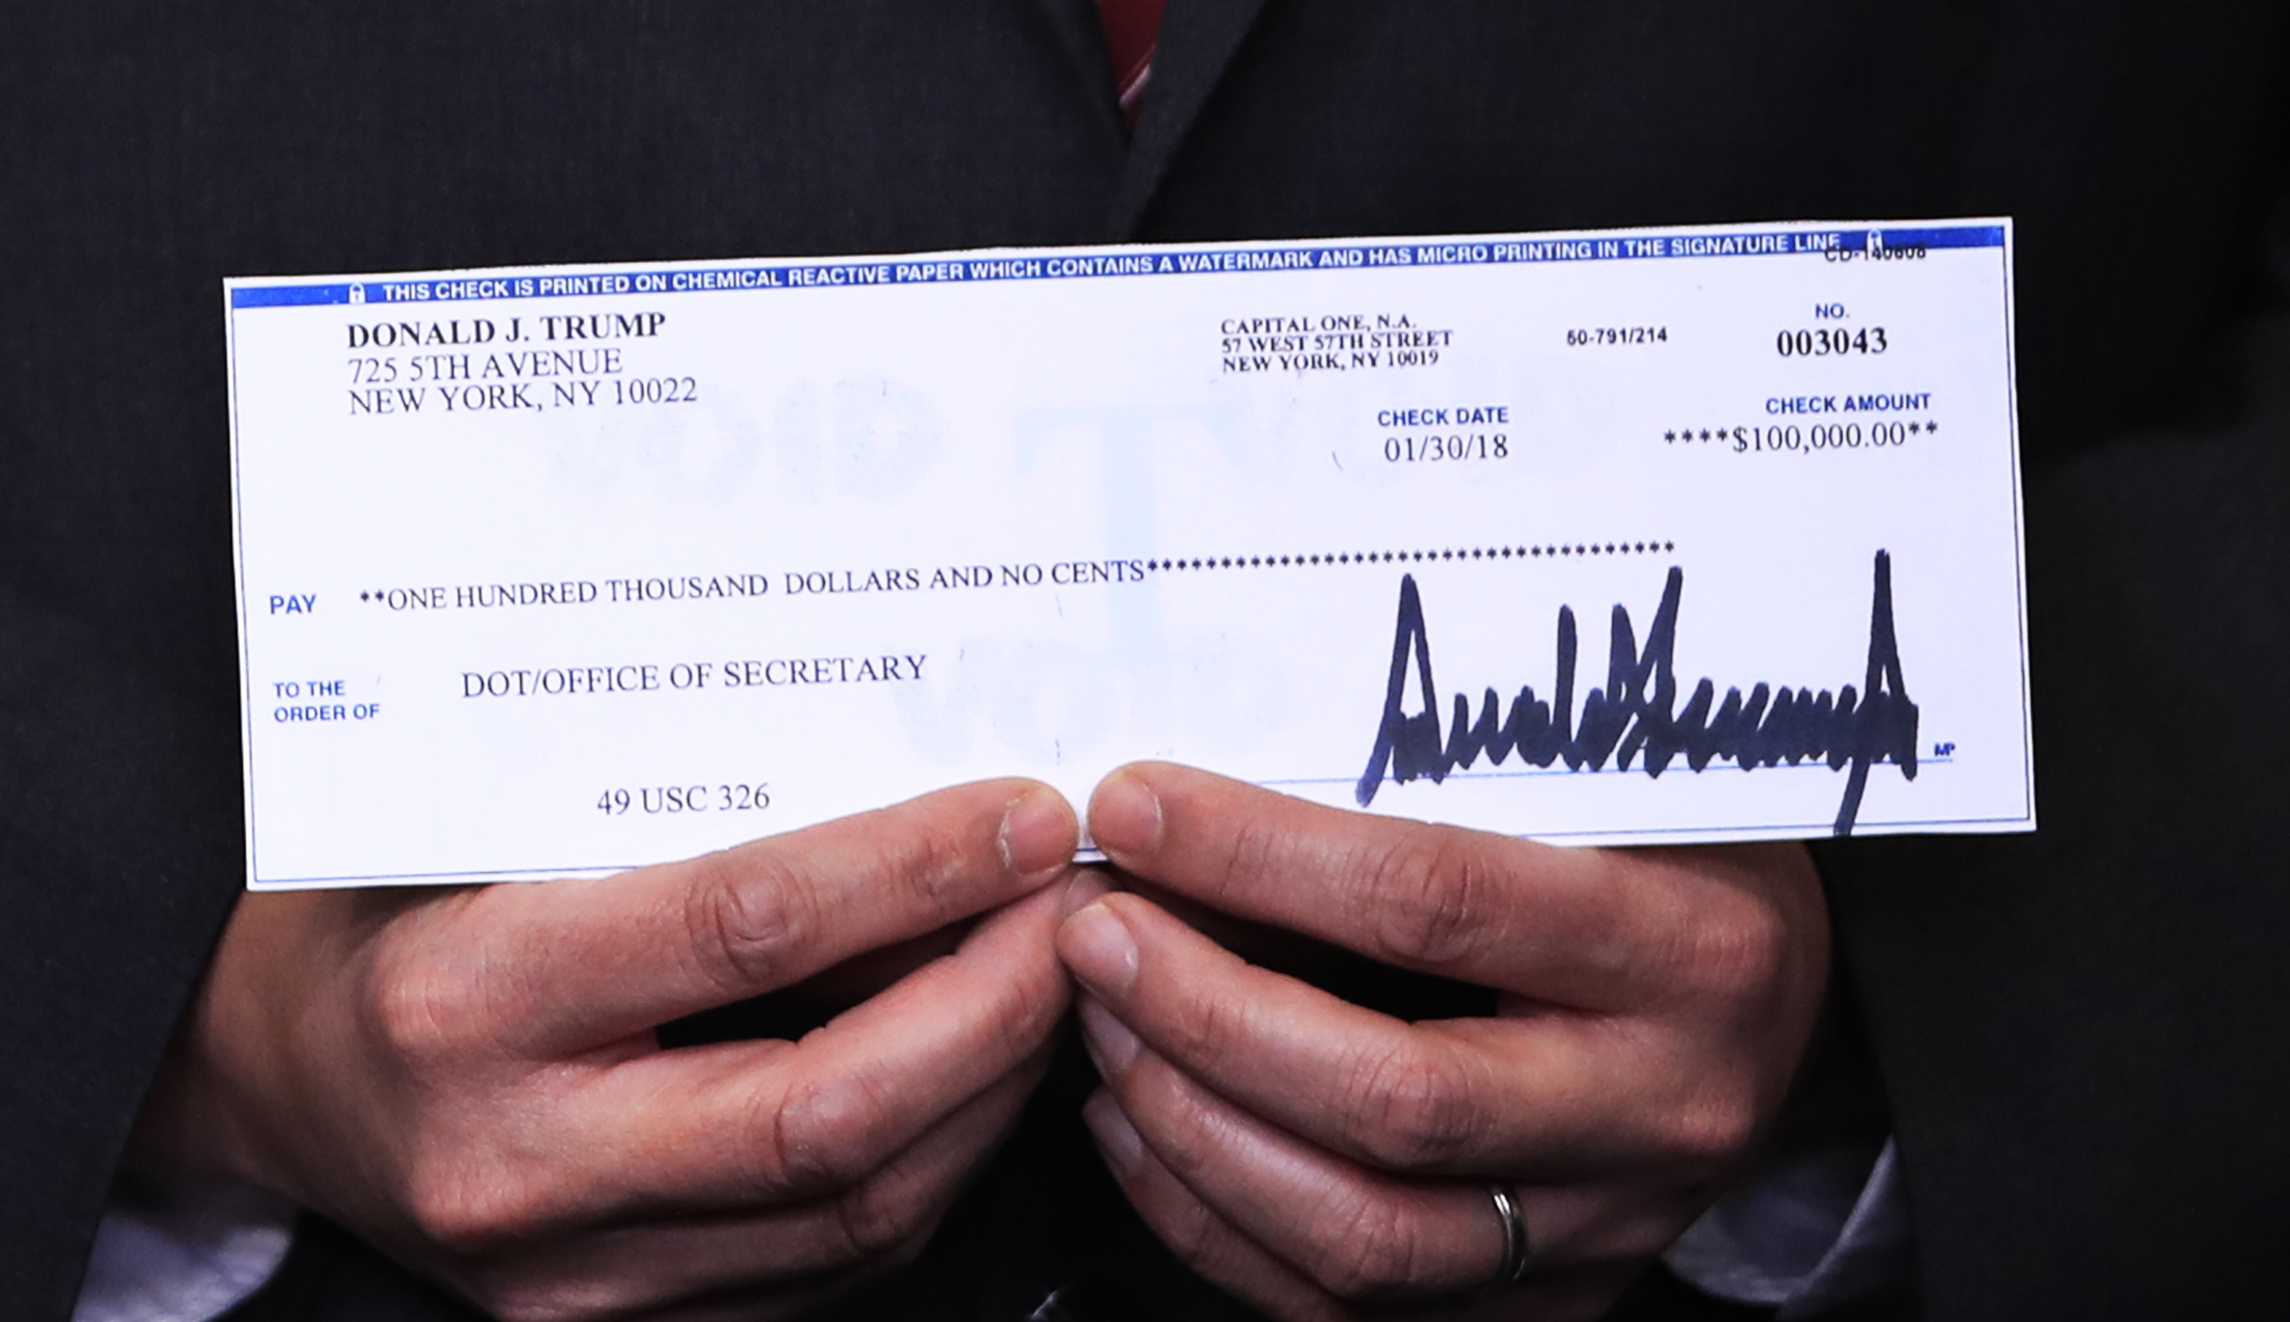 THIS CHECK IS PRINTED ON CHEMICAL REACTIVE PAPER WHICH CONTAINS A WATERMARK AND HAS MICRO PRINTING IN THE SIGNATURE LINE
CD-140808
DONALD J. TRUMP
725 5TH AVENUE
NEW YORK, NY 10022
CAPITAL ONE, N.A.
57 WEST 57TH STREET
NEW YORK, NY 10019
50-791/214
NO.
003043
CHECK DATE
01/30/18
CHECK AMOUNT
****$100,000.00**
PAY **ONE HUNDRED THOUSAND DOLLARS AND NO CENTS************************************
TO THE
ORDER OF
DOT/OFFICE OF SECRETARY
MP
49 USC 326